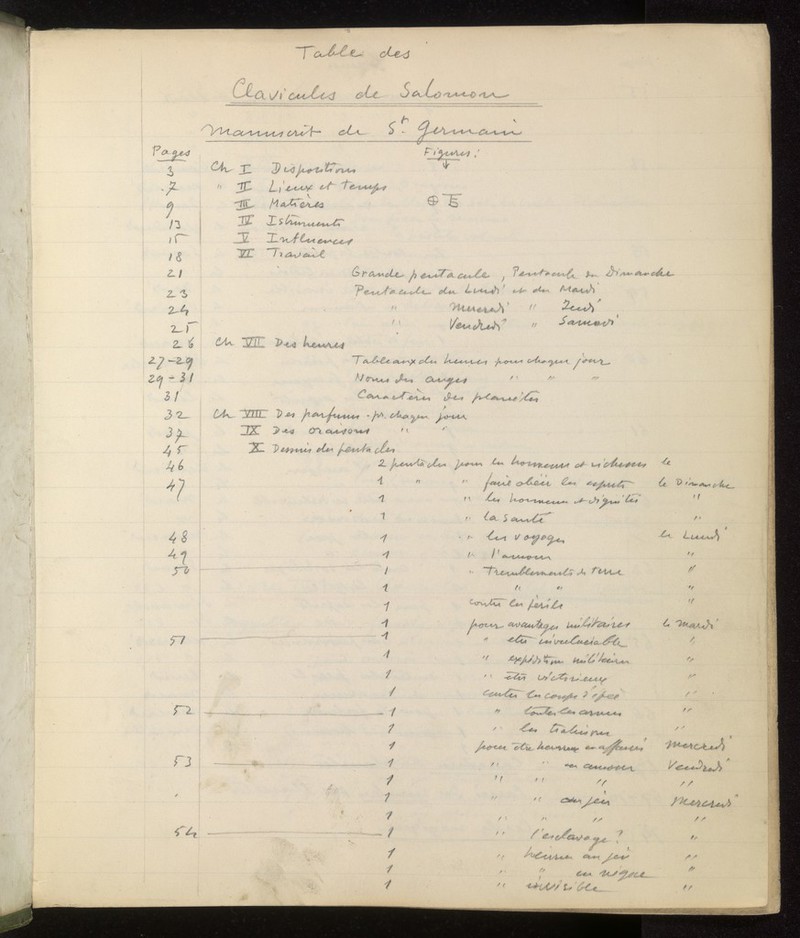 Table des
Clavicules de Salomon
Manuscrit de St. Germain
Pages Figures:
3 Ch I Dispositions
7 " II Lieux et temps
9 III Matières
13 IV Istruments
15 V Influences
18 VI Travail
21 Grande pentacule, Pentacule du Dimanche
23 Pentacule du Lundi et du Mardi
24 " Mercredi " Jeudi
25 " Vendredi " Samedi
26 Ch VII Des heures
27-29 Tableaux des heures pour chaque jour
29-31 Noms des anges " " "
31 Caractères des planètes
32 Ch VIII Des parfums - pr. chaque jour
37 IX Des oraisons " "
45 X Dessins des pentacles
46 2 pentacles pour les honneurs et richesses le
47 1 " " faire obéir les esprits le Dimanche
1 " les honneurs et dignités "
1 " la Santé "
48 1 " les voyages le Lundi
49 1 " l'amour "
50 1 " Tremblements de Terre "
1 " " "
1 contre les périls "
1 pour avantages militaires le Mardi
51 1 " etre invulnérable "
1 " expédition militaire "
1 " etre victorieux "
1 contre les coups d'épée "
52 1 " toutes les armes "
1 " les trahisons "
1 pour etre heureux en affaires Mercredi
53 1 " " en amour Vendredi
1 " " " "
1 " " au jeu Mercredi
1 " " " "
54 1 " l'esclavage? "
1 " heureux au jeu "
1 " " en négoce "
1 " invisible "